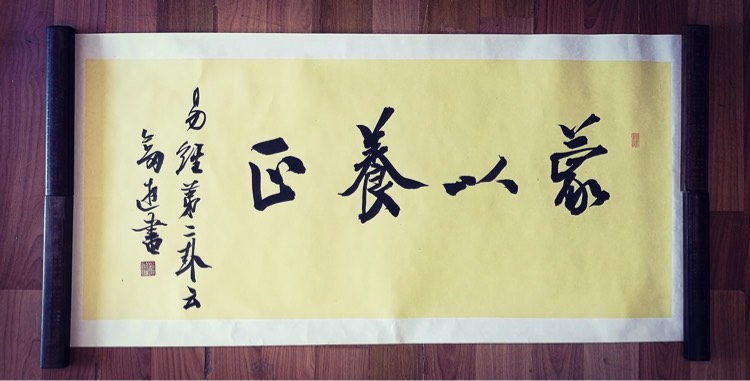 蒙以養正
易經第二卦云
書